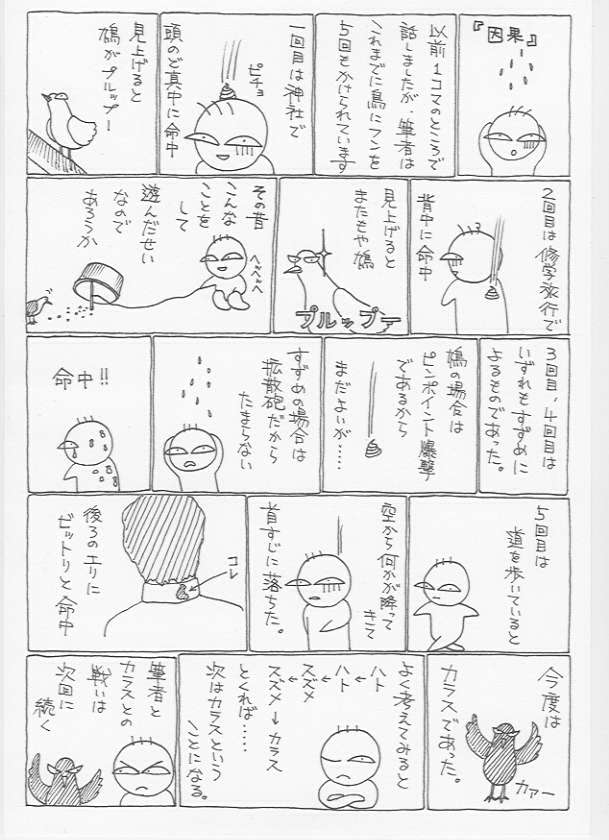 『因果』
以前1コマのところで
話しましたが、筆者は
これまでに鳥にフンを
5回もかけられています
一回目は神社で
頭のど真中に命中
ピチョ
見上げると
鳩がプルップー
2回目は修学旅行で
背中に命中
見上げると
またもや鳩
プルップー
その昔
こんな
ことを
して
遊んだせい
なので
あろうか
ヘヘヘヘ
3回目、4回目は
いずれもすずめに
よるものであった。
鳩の場合は
ピンポイント爆撃
であるから
まだよいが……
すずめの場合は
拡散砲だから
たまらない
命中!!
5回目は
道を歩いていると
空から何かが降って
きて
首すじに落ちた。
コレ
後ろのエリに
ビットリと命中
今度は
カラスであった。
カァー
よく考えてみると
ハト←ハト←
スズメ←
スズメ→カラス
とくれば……
次はカラスという
ことになる。
筆者と
カラスとの
戦いは
次回に
続く